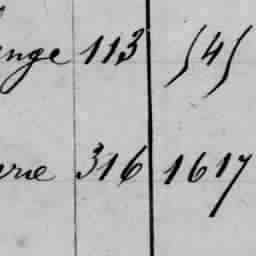 enge 113 (4)
erie 316 1617